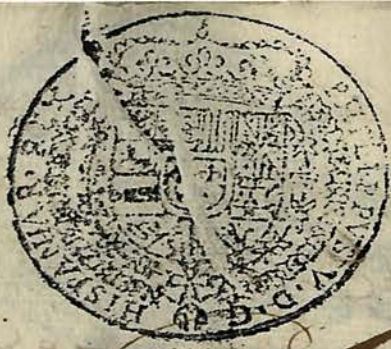 PHILIPPVS. V. D. G.
HISPANIAR. REX